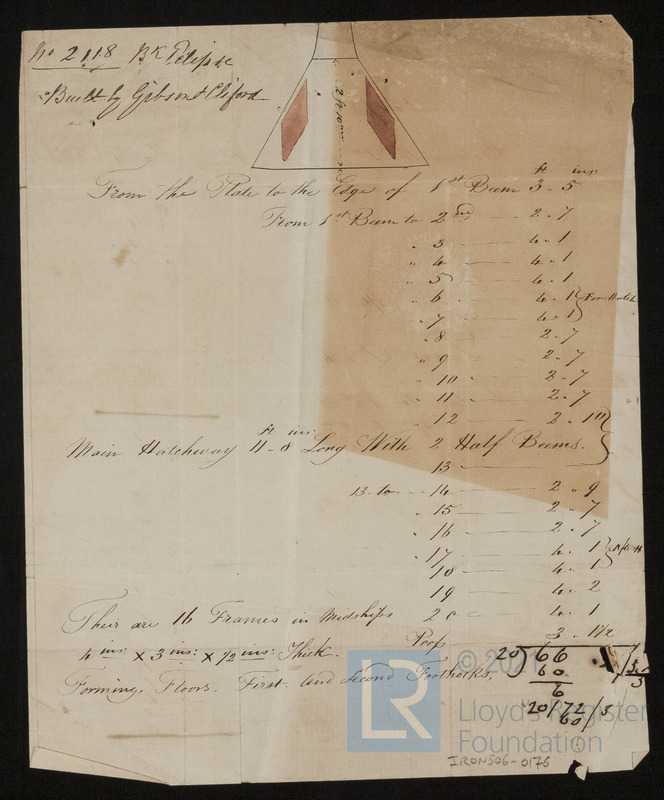 No 2118 Bk Eclipse
Built by Gibson & Cliford
2 ft 10 ins
ft ins
From the Plate to the Edge of 1st Beam 3 - 5
From 1st Beam to 2nd 2 - 7
" 3 4 - 1
" 4 4 - 1
" 5 4 - 1
" 6 4 - 1 Fore Hatch
" 7 4 - 1
" 8 2 - 7
" 9 2 - 7
" 10 2 - 7
" 11 2 - 7
12 2 - 1
ft ins
Main Hatchway 11 - 8 Long With 2 Half Beams.
13
13 to 14 2 " 9
" 15 2 - 7
" 16 2 - 7
" 17 4 - 1
" 18 4 - 1
19 4 - 2
Their are 16 Frames in Midships 20 4 - 1
Poop 3 - 1 1/2
4 ins x 3 ins x 1/2 ins Thick.
Forming Floors. First and Second Foothooks.
20) 66
60
6
20) 72 / 3
60
LR
Lloyd's Register
Foundation
IRON506-0176